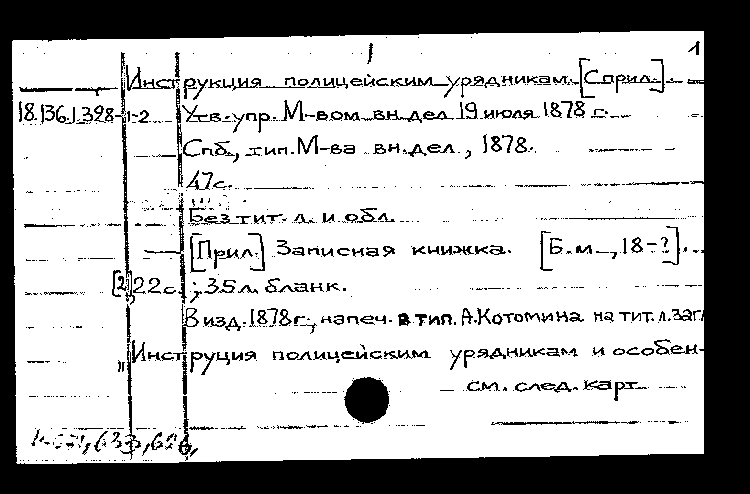 1
Инструкция полицейским урядникам. [С прил.].
18.136.1.398-1-2 Утв. упр. М-вом вн. дел 19 июля 1878 г.
Спб., тип. М-ва вн. дел, 1878.
47 с.
Без тит. л. и обл.
[Прил.] Записная книжка. [Б. м., 18-?].
[2], 22 с.; 35 л. бланк.
В изд. 1878 г., напеч. в тип. А. Котомина на тит. л. загл
"Инструция полицейским урядникам и особен-
см. след. карт